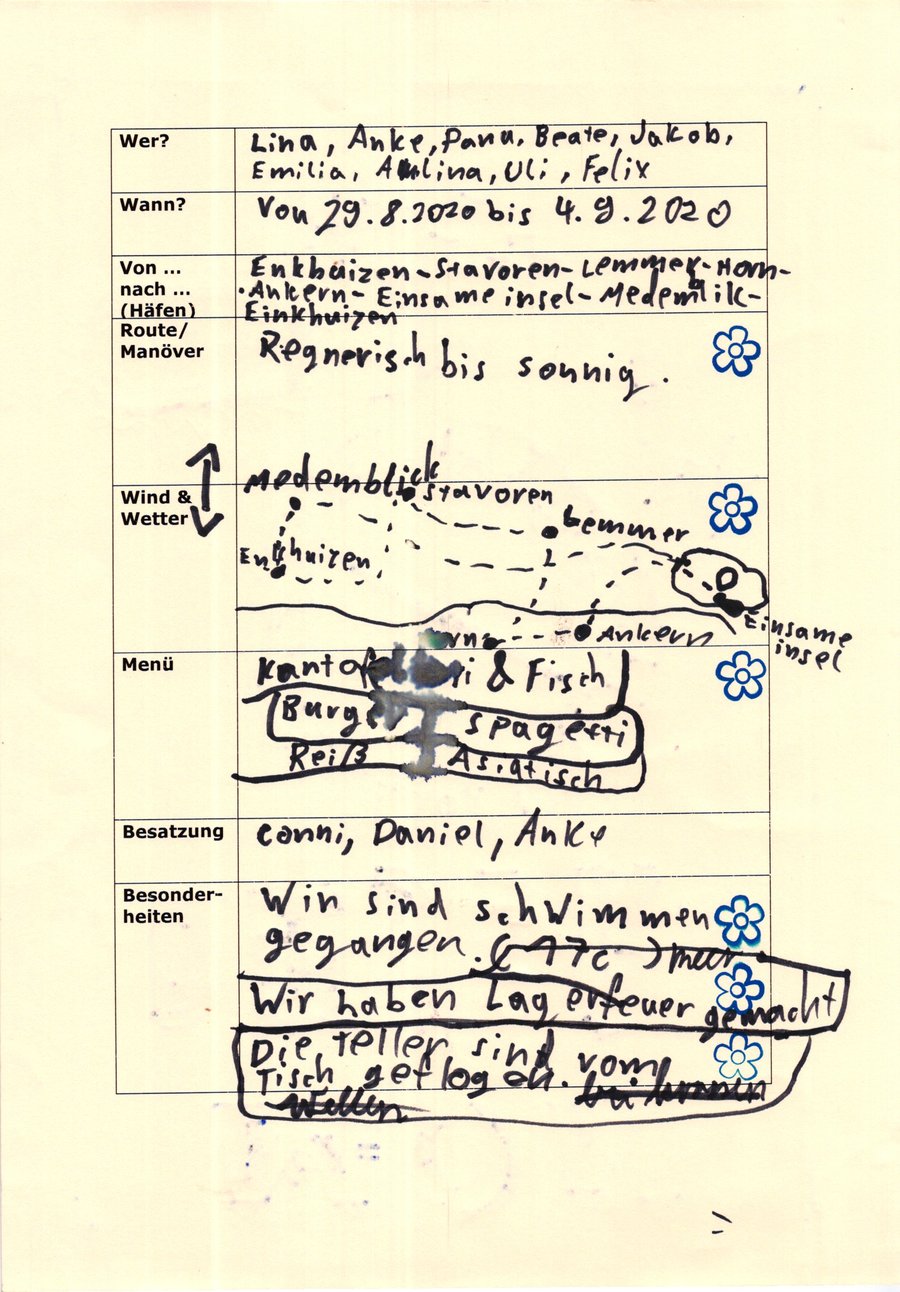 Wer?
Lina, Anke, Panu, Beate, Jakob,
Emilia, Aulina, Uli, Felix
Wann?
Von 29.8.2020 bis 4.9.2020
Von ...
nach ...
(Häfen)
Enkhuizen-Stavoren-Lemmer-Horn-
Ankern-Einsame insel-Medemblik-
Einkhuizen
Route/
Manöver
Regnerisch bis sonnig.
Wind &
Wetter
Medemblick
Stavoren
Lemmer
Enkhuizen
Einsame
insel
Ankern
Menü
& Fisch
Burger
spagetti
Reiß
Asiatisch
Besatzung
conni, Daniel, Anke
Besonder-
heiten
Wir sind schwimmen
gegangen. (17c)
Wir haben Lagerfeuer gemacht
Die teller sind vom
Tisch geflogen.